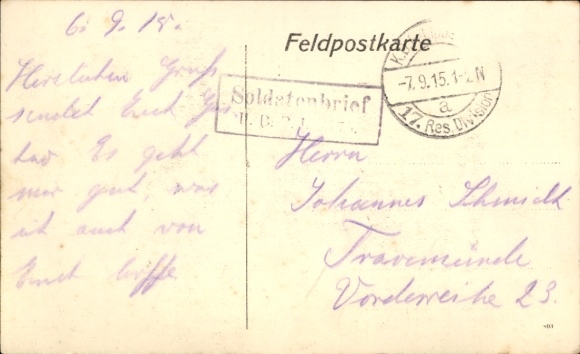 6. 9. 15.
Feldpostkarte
-7.9.15.1-2N
a
17. Res. Division
Soldatenbrief
Herzlichen Gruß
sendet Euch
Es geht
mir gut, was
ich auch von
Euch hoffe
Herrn
Johannes Schmidt
Travemünde
Vorderreihe 23.